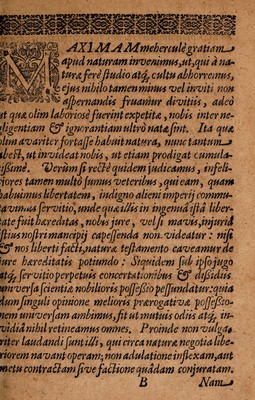 MAXIMAM mehercule gratiam
apud naturam invenimus, ut, qui à na-
tura ferè studio atq́, cultu abhorremus,
ejus nihilo tamen minus vel inviti non
aspernandis fruamur divitiis, adeò
ut quæ olim laboriosè fuerint expetita, nobis inter ne-
gligentiam & ignorantiam ultrò natæ sint. Ita quæ
olim avariter fortasse habuit natura, nunc tantum
abest, ut invideat nobis, ut etiam prodigat cumula-
tissimè. Verùm si rectè quidem judicamus, infeli-
ciores tamen multò sumus veteribus, qui eam, quam
habuimus libertatem, indigno alieni imperij commu-
tavimus servitio, unde quæ illis in ingenua ista liber-
tate fuit hæreditas, nobis jure, vel si mavis, injuriâ
istius nostri mancipij capessenda non videatur: nisi
& nos liberti facti, naturæ testamento caveamur de
jure hæreditatis potiundo: Siquidem sub ipso jugo
atq́, servitio perpetuis concertationibus & dissidiis
universa scientiæ nobilioris possessio pessundatur: quia
dum singuli opinione melioris prærogativæ possessio-
nem universam ambimus, fit ut mutuis odiis atq́, in-
vidiâ nihil retineamus omnes. Proinde non vulga-
riter laudandi sunt illi, qui circa naturæ negotia libe-
riorem navant operam; non adulatione inflexam, aut
metu contractam sive factione quâdam conjuratam.
B Nam